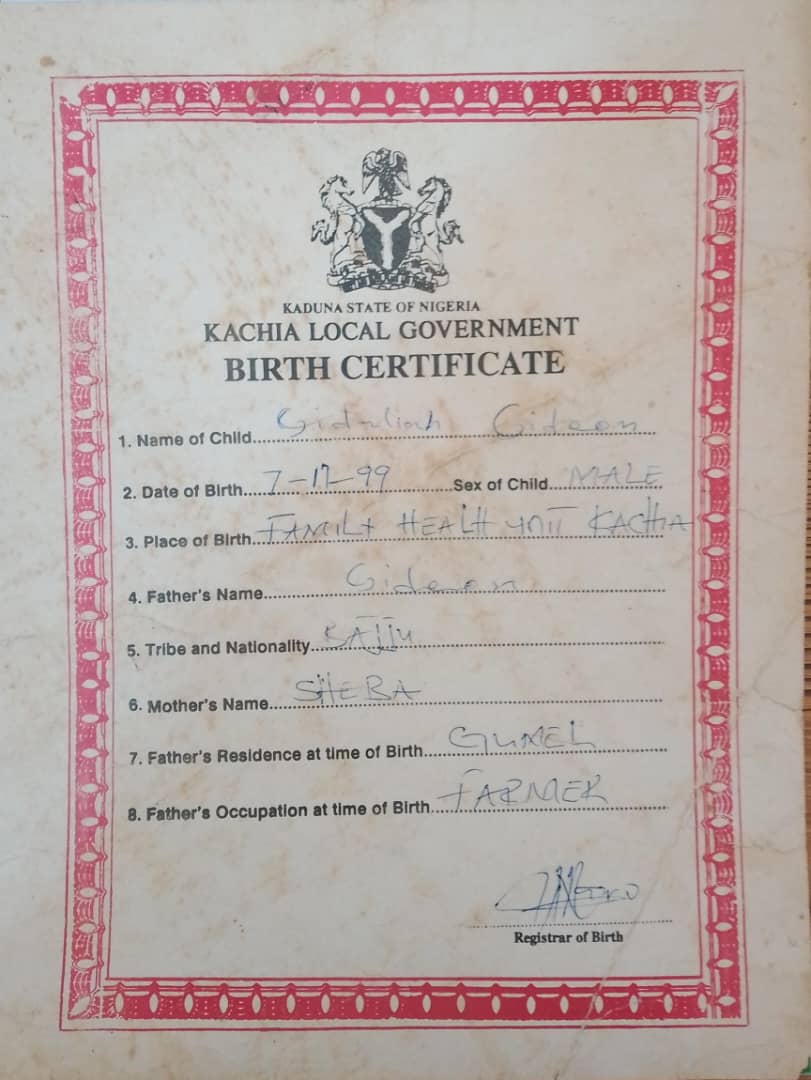 KADUNA STATE OF NIGERIA
KACHIA LOCAL GOVERNMENT
BIRTH CERTIFICATE
1. Name of Child.... Gideon
2. Date of Birth.... 7-12-99 ....Sex of Child.... MALE
3. Place of Birth.... FAMILY HEALTH UNIT KACHIA
4. Father's Name.... Gideon
5. Tribe and Nationality.... BAJJU
6. Mother's Name.... SHEBA
7. Father's Residence at time of Birth.... GUMEL
8. Father's Occupation at time of Birth.... FARMER
Registrar of Birth